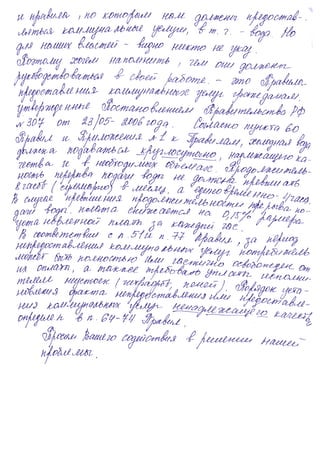 и правила, по которым нам должны предостав-
ляться коммунальные услуги, в т.г. - вода. Но
для наших властей - видно никто не указ.
Поэтому хотим напомнить, чем они должны
руководствоваться в своей работе - это Правила
предоставления коммунальных услуг гражданам,
утвержденные Постановлением Правительства РФ
№ 307 от 23/05-2006 года. Согласно пункта 60
Правил и Приложения №1 к Правилам, холодная вода
должна подаваться круглосуточно, надлежащего ка-
чества и в необходимых объемах. Продолжитель-
ность перерыва подачи воды не должна превышать
8 часов (суммарно) в месяц, а единовременно 4 часа.
В случае превышения продолжительности перерыва по-
дачи воды плата снижается на 0,15% размера
платы за каждый час.
В соответствии с п. 51 и п. 77 Правил, за период
непредоставления коммунальных услуг потребитель
может быть полностью или частично освобожден от
их оплаты, а также требовать уплаты исполни-
телем неустоек (штрафов, пеней). Порядок уста-
новления факта непредоставления или предоставле-
ния коммунальных услуг ненадлежащего качества
определен в п. 64-74 Правил.
Просим Вашего содействия в решении нашей
проблемы.